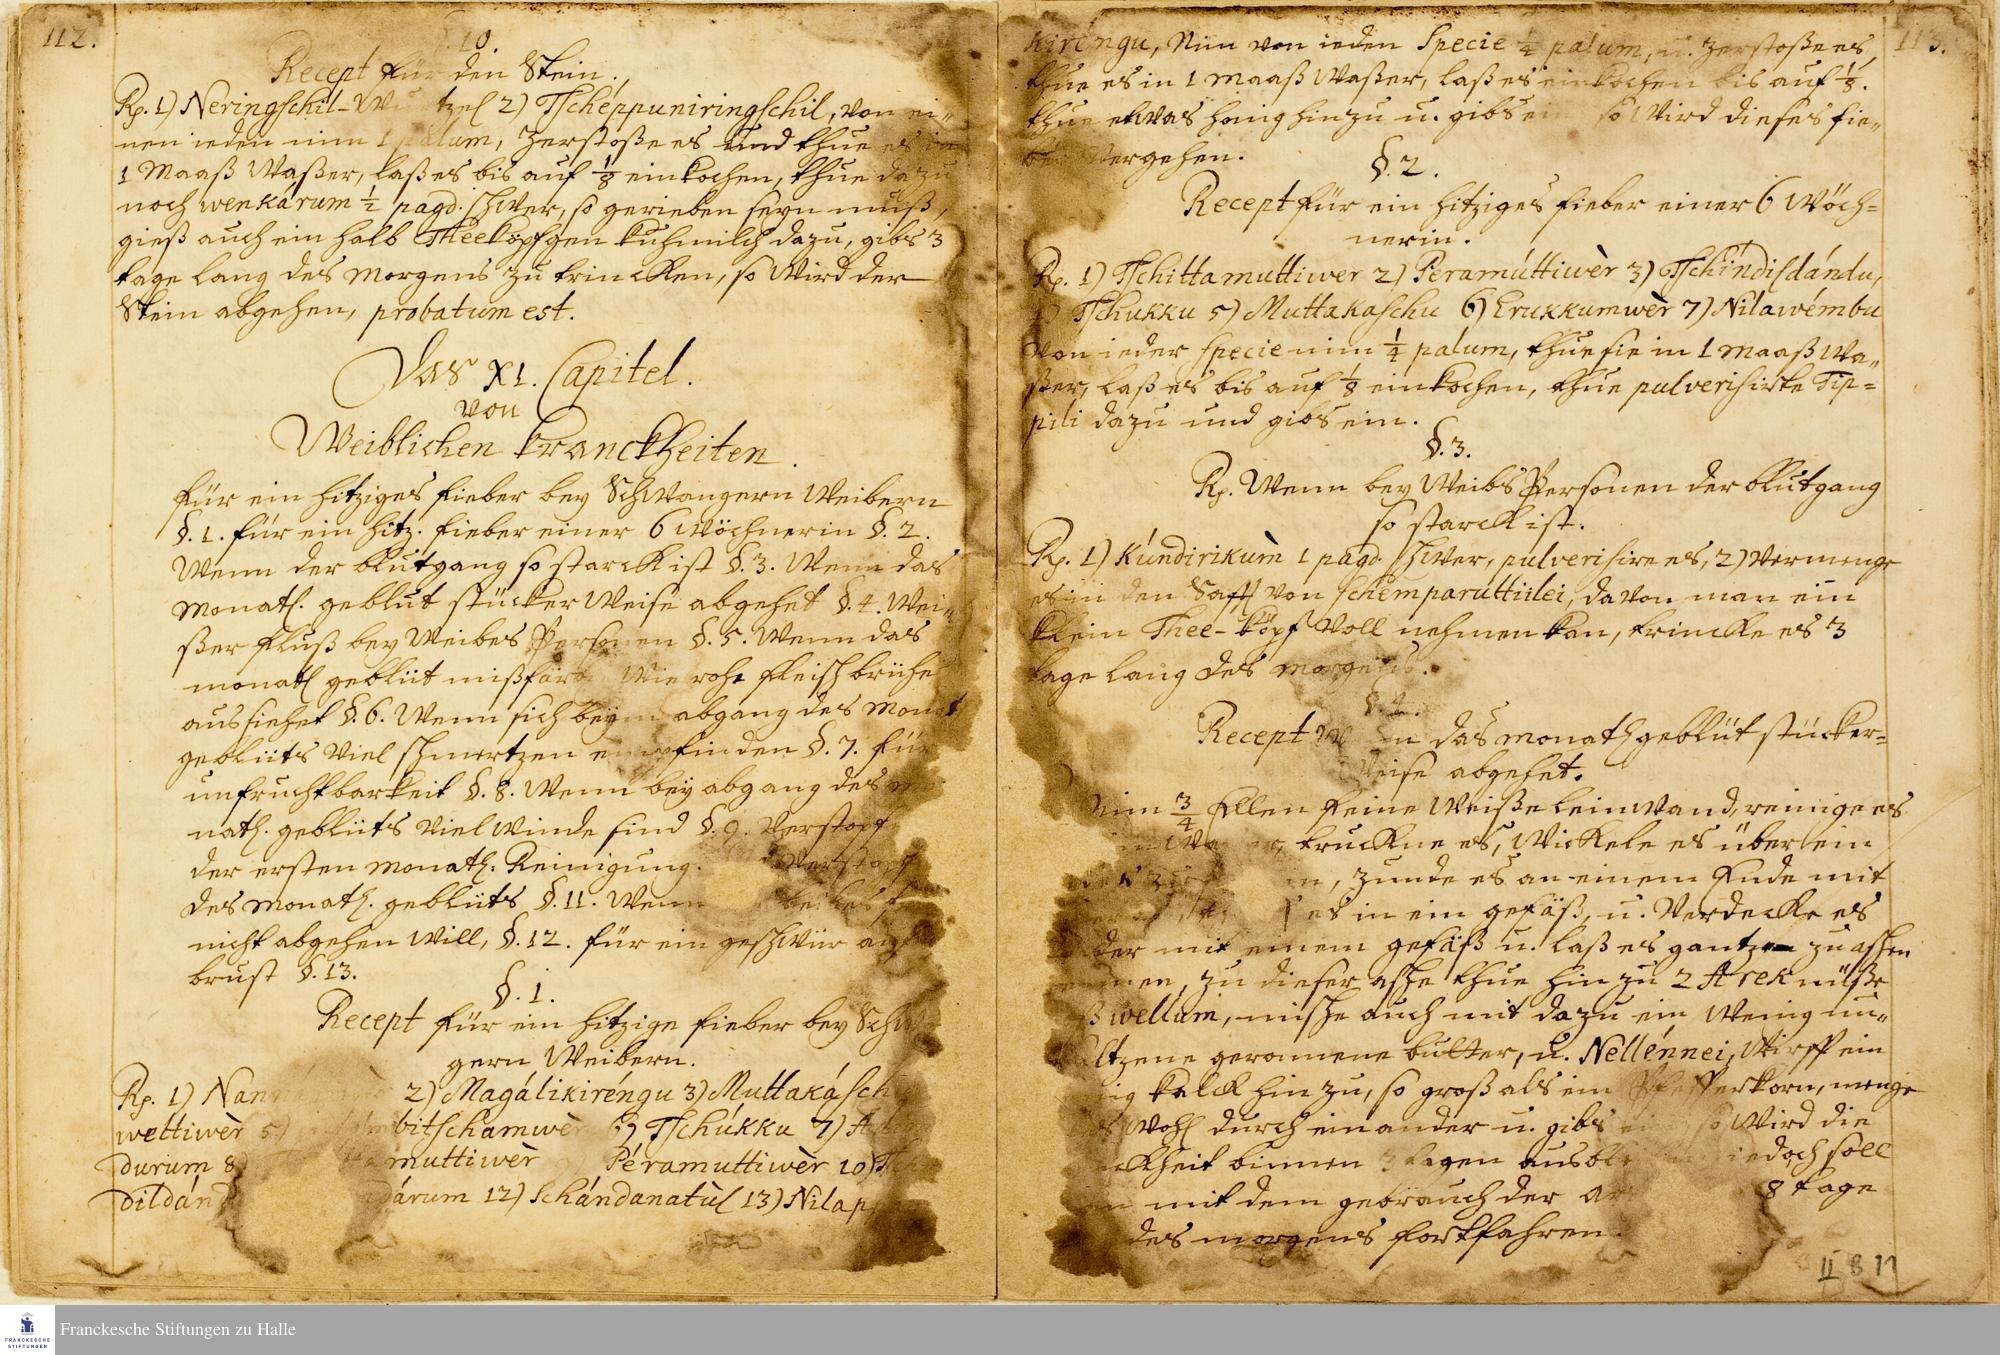 112.
§. 10.
Recept für den Stein.
Rp. 1) Neringschil-Wurtzel 2) Tschéppuniringschil, von ei„
nen ieden nim 1 palum, zerstoße es und thue es in
1 Maaß Waßer, laß es bis auf 1/8 einkochen, thue dazu
noch wenkárum 1/2 pagd. schwer, so gerieben seyn muß,
gieß auch ein halb Theeköpfgen kuhmilch dazu, gibs 3
tage lang des Morgens zu trincken, so wird der
Stein abgehen, probatum est.
Das XI. Capitel.
von
Weiblichen Kranckheiten.
für ein hitziges fieber bey Schwangern Weibern
§. 1. für ein hitz. fieber einer 6 Wöchnerin §. 2.
Wenn der blutgang so starck ist §. 3. Wenn das
Monatl. geblüt stücker Weise abgehet §. 4. Wei„
ßer fluß bey Weibes Personen §. 5. Wenn das
monatl geblüt mißfärb Wie rohe fleisch brühe
aussiehet §. 6. Wenn sich beym abgang des Monat
geblüts Viel schmertzen empfinden §. 7. für
unfruchtbarkeit §. 8. Wenn bey abgang des mo
natl. geblüts Viel Winde sind §. 9. Verstopf
der ersten monatl. Reinigung. Verstopf
des monatl. geblüts §. 11. Wenn
nicht abgehen will, §. 12. für ein geschwür auf
brust §. 13.
§. 1.
Recept für ein hitzige fieber bey Schw
gern Weibern.
Rp. 1) Nann 2) Magálikiréngu 3) Muttakásch
wettiwèr 5) bitschamwèr 6) Tschúkku 7) A
durum 8) muttiwèr Péramuttiwèr 10) Tsch
dildánd dárum 12) Schándanatùl 13) Nilap
113.
kiréngu, Nim von ieden Specie 1/4 palum, u. zerstoße es
thue es in 1 Maaß Waßer, laß es einkochen bis auf 1/8.
thue etwas honig hinzu u. gibs ein so wird dieses fie„
ber vergehen.
§. 2.
Recept für ein hitziges fieber einer 6 Wöch=
nerin.
Rp. 1) Tschittamuttiwer 2) Peramúttiwèr 3) Tschíndildándu,
4) Tschukku 5) Muttakaschu 6) Erukkumwèr 7) Nilawémbu
Von ieder Specie nim 1/4 palum, thue sie in 1 Maaß Wa„
ßer, laß es bis auf 1/8 einkochen, thue pulverisirte Tip=
pili dazu und gibs ein.
§. 3.
Rp. Wenn bey Weibs Personen der blutgang
so starck ist.
Rp. 1) Kúndirikum 1 pagd. schwer, pulverisire es, 2) vermenge
es in den Safft von schemparúttiilei, davon man ein
klein Thee-köpf voll nehmen kan, trincke es 3
tage lang des morgens.
§. 4.
Recept Wenn das monatl geblüt stücker=
Weise abgehet.
Nim 3/4 Ellen feine Weiße leinwand, reinige es
in Waßer, truckne es, Wickele es über ein
, zünde es an einem Ende mit
es in ein gefäß, u. Verdecke es
der mit einem gefäß u. laß es gantz zu aschen
, zu dieser asche thue hinzu 2 Arek nüße
wellum, mische auch mit dazu ein Wenig un„
saltzene geronnene butter, u. Nellénnei, Wirff ein
ig kalck hinzu, so groß als ein Pfefferkorn, menge
Wohl durch einander u. gibs ein so Wird die
ckheit binnen 3 tagen ausbl iedoch soll
mit dem gebrauch der ar 8 tage
des morgens fortfahren.
II B 11
FRANCKESCHE
STIFTUNGEN
Franckesche Stiftungen zu Halle